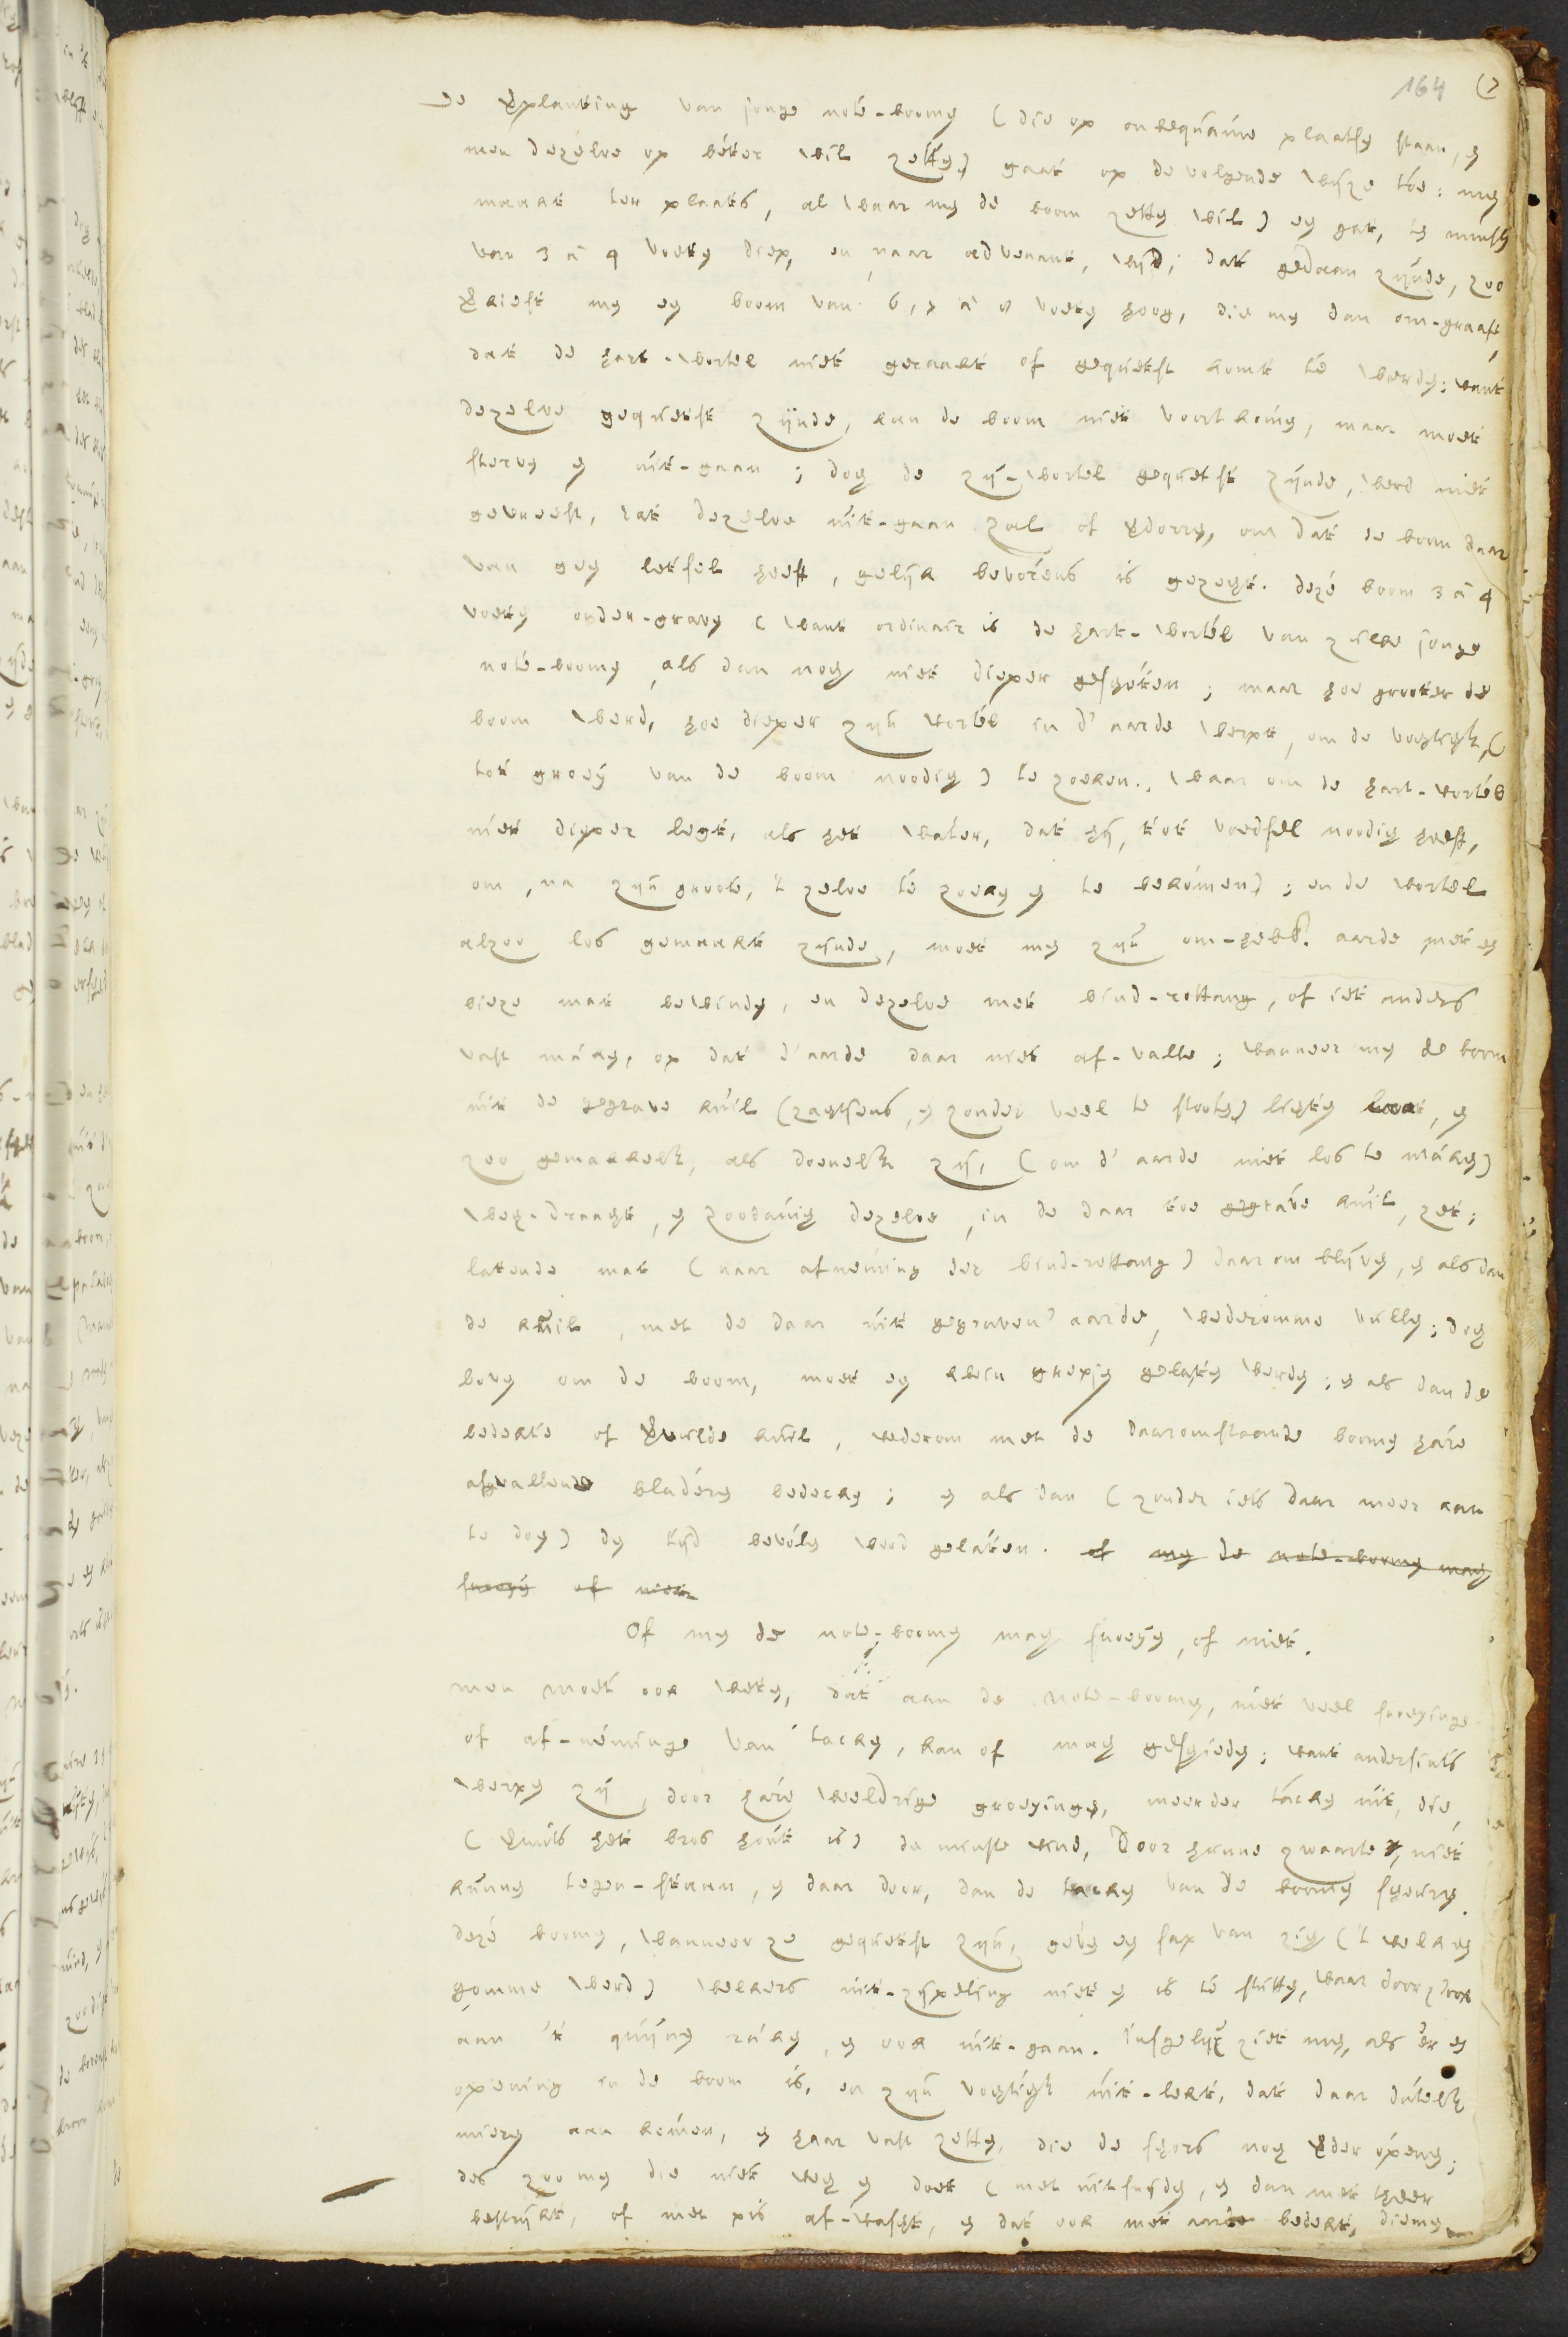 164 (7
De verplanting van jonge note-boomen (die op onbequáme plaatsen staan, en
men dezelve op béter wil zetten) gaat op de volgende wijze tóe: men
maakt ter plaats, al waar men de boom zetten wil) een gat, ten minsten
van 3 á 4 voeten diep, en naar advenant, wijd; dat gedaan zijnde, zoo
verkiest men een boom van 6, 7 á 8 voeten hoog, die men dan om-graaft,
dat de hart-wortel niet geraakt of gequetst komt té werden; want
dezelve gequetst zijnde, kan de boom niet voort komen, maar moet
sterven en uit-gaan; dog de zij-wortel gequetst zijnde, werd niet
gevreest, dat dezelve uit-gaan zal of verdorren, om dat de boom daar
van geen letsel heeft, gelijk bevórens is gezegt. dezé boom 3 á 4
voeten onder-graven (want ordinair is de hart-wortél van zulke jonge
note-boomen als dan nog niet dieper geschóten; maar hoe grooter de
boom werd, hoe dieper zijn wortél in d' aarde werpt, om de vogtigh. (
tot groeij van de boom noodig) te zoeken., waar om de hart-wortél
niet dieper legt, als het water, dat hij, tot voedsel noodig heeft,
om, na zijn groote, 't zelve té zoeken en te bekómen); en de wortel
alzoo los gemaakt zijnde, moet men zijn om-hebb. aarde met een
bieze mat bewinden, en dezelve met bind-rottang, of iet anders
vast máken, op dat d'aarde daar niet af-valle; wanneer men de boom
uit de gegrave kuil (zagtjens, en zonder veel te stooten) ligten laat, en
zoo gemakkelk, als doenelk zij, (om d' aarde niet los te máken)
weg-draagt, en zoodánig dezelve, in de daar toe gegráve kuil, zet;
latende mat (naar afnéming der bind-rottang) daar om blijven, en als dan
de kuil, met de daar uit gegraven aarde, wederomme vullen; dog
boven om de boom, moet een klein grepjen geláten werden; en als dan de
bedekte of vervulde kuil, wederom met de daaromstaande boomen háre
afgvallende bladéren bedecken; en als dan (zonder iets daar meer aan
te doen) den tijd bevólen werd geláten. of men de note-boomen mag
snoeijen of niet
Of men de note-boomen mag snoeijen, of niet.
men moet ook weten, dat aan de note-boomen, niet veel snoeyinge
of af-néminge van tacken, kan of mag geschieden; want andersints
werpen zij, door háre weeldrige groeyinge, meerder tácken uit, die,
(vermits het bros hout is) de minste wind, door hunne zwaarte, niet
kunnen tegen-staan, en daar door, dan de tacken van de boomen scheuren.
dezé boomen, wanneer ze gequetst zijn, géven een sap van zig ('t welk een
gomme werd) welkers uit-zijpeling niet en is té stutten, waar door z'ook
aan 't quijnen ráken, en ook uit-gaan. insgelijx ziet men, als 'er een
opening in de boom is, en zijn vogtigh. uit-lekt, dat daar dútelk
mieren aan kómen, en haar vast zetten, die de schors nog verder ópenen;
des zoo men die niet weg en doet (met uitsnijden, en dan met theer
bestrijkt, of met pis af-wascht, en dat ook met aarde bedekt, die men